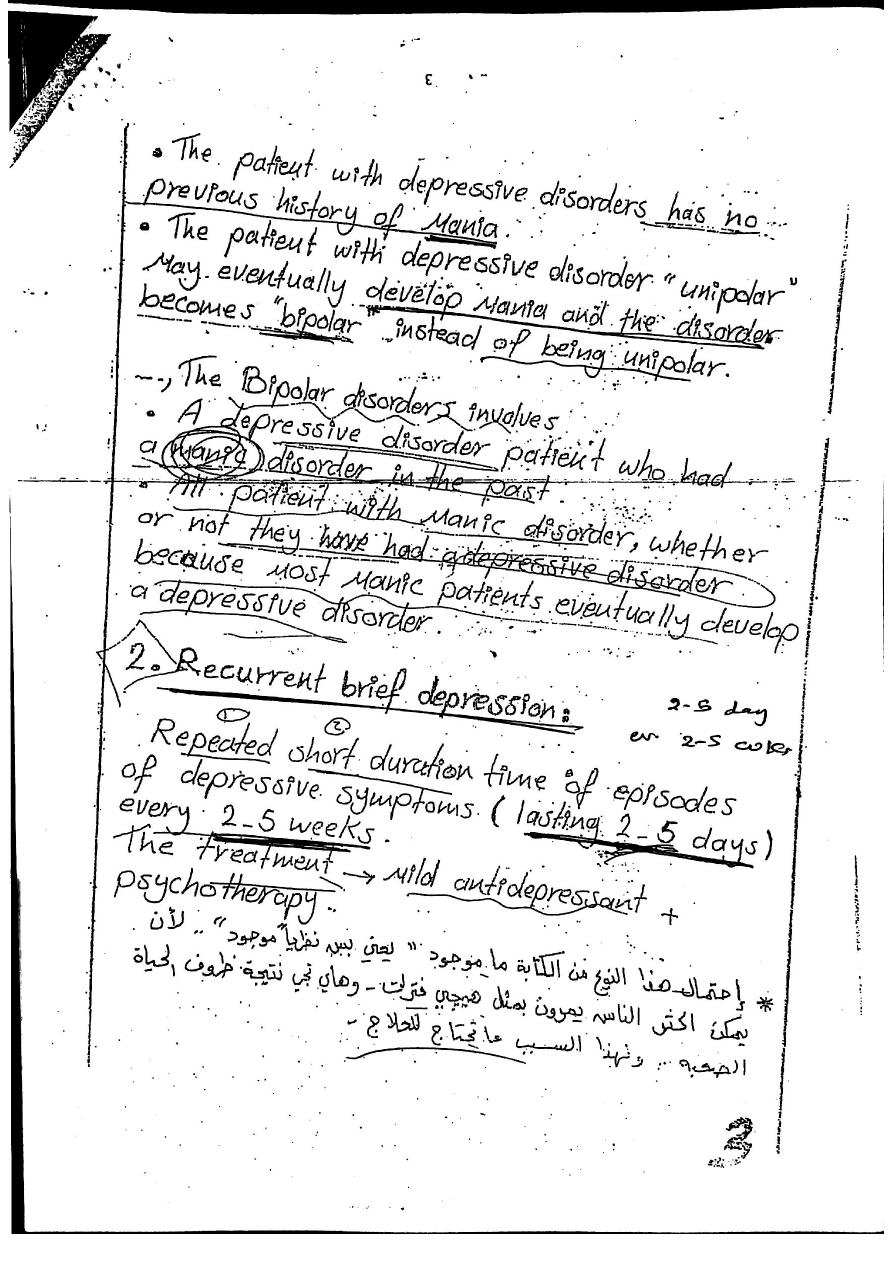 3
• The patient with depressive disorders has no
previous history of Mania.
• The patient with depressive disorder "unipolar"
May eventually develop Mania and the disorder
becomes "bipolar" instead of being unipolar.
--, The Bipolar disorders involves
• A depressive disorder patient who had
a manic disorder in the past.
• All patient with Manic disorder, whether
or not they have had a depressive disorder
because Most Manic patients eventually develop
a depressive disorder.
2. Recurrent brief depression:
2-5 day
2-5
① ②
Repeated short duration time of episodes
of depressive symptoms (lasting 2-5 days)
every 2-5 weeks.
The treatment → Mild antidepressant +
psychotherapy..
* إحتمال هذا النوع من الكتابة ما موجود " يعني بس نظرياً موجود" .. لأن
يمكن اكثر الناس يمرون بمثل هيجي فترات - وهاي تجي نتيجة ظروف الحياة
الصعبة .. ولهذا السبب ما تحتاج للعلاج -
3